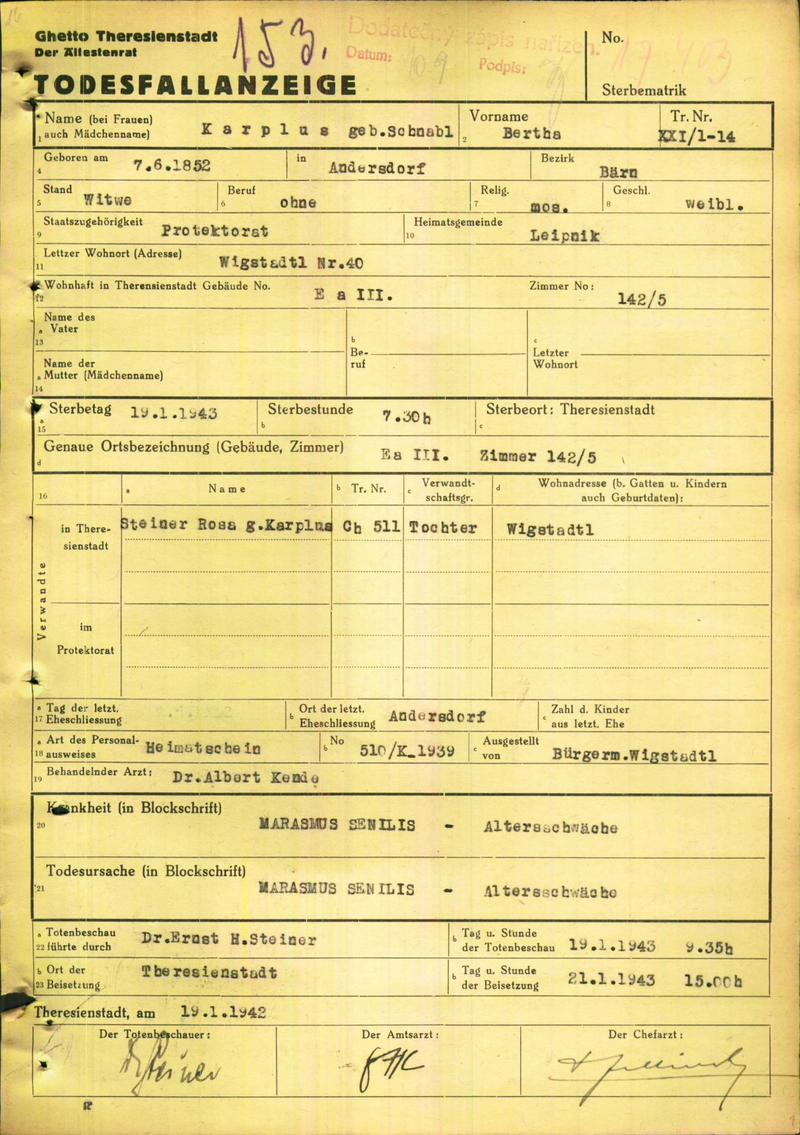 Ghetto Theresienstadt
Der Ältestenrat
153.
Dodatečný zápis nařízen.
Datum:
Podpis:
No.
TODESFALLANZEIGE
Sterbematrik
Name (bei Frauen) auch Mädchenname) 1 Karplus geb.Schnabl Vorname 2 Bertha Tr. Nr. XXI/1-14
Geboren am 4 7.6.1852 in Andersdorf Bezirk Bärn
Stand 5 Witwe Beruf 6 ohne Relig. 7 mos. Geschl. 8 weibl.
Staatszugehörigkeit 9 Protektorat Heimatsgemeinde 10 Leipnik
Lettzer Wohnort (Adresse) 11 Wigstadtl Nr.40
Wohnhaft in Therensienstadt Gebäude No. 12 E a III. Zimmer No: 142/5
Name des a Vater 13
b Beruf
c Letzter Wohnort
Name der a Mutter (Mädchenname) 14
Sterbetag a 15 19.1.1943 Sterbestunde b 7.30h Sterbeort: Theresienstadt c
Genaue Ortsbezeichnung (Gebäude, Zimmer) d Ea III. Zimmer 142/5
16 a Name b Tr. Nr. c Verwandtschaftsgr. d Wohnadresse (b. Gatten u. Kindern auch Geburtdaten):
Verwandte
in Theresienstadt Steiner Rosa g.Karplus Ch 511 Tochter Wigstadtl
im Protektorat
a Tag der letzt. 17 Eheschliessung b Ort der letzt. Eheschliessung Andersdorf c Zahl d. Kinder aus letzt. Ehe
a Art des Personal- 18 ausweises Heimatschein b No 510/K_1939 c Ausgestellt von Bürgerm.Wigstadtl
19 Behandelnder Arzt: Dr.Albert Kende
Krankheit (in Blockschrift)
20 MARASMUS SENILIS - Altersschwäche
Todesursache (in Blockschrift)
21 MARASMUS SENILIS - Altersschwäche
a Totenbeschau 22 führte durch Dr.Ernst H.Steiner b Tag u. Stunde der Totenbeschau 19.1.1943 9.35h
b Ort der 23 Beisetzung Theresienstadt b Tag u. Stunde der Beisetzung 21.1.1943 15.00h
Theresienstadt, am 19.1.1942
Der Totenbeschauer: Der Amtsarzt: Der Chefarzt:
Dr Steiner